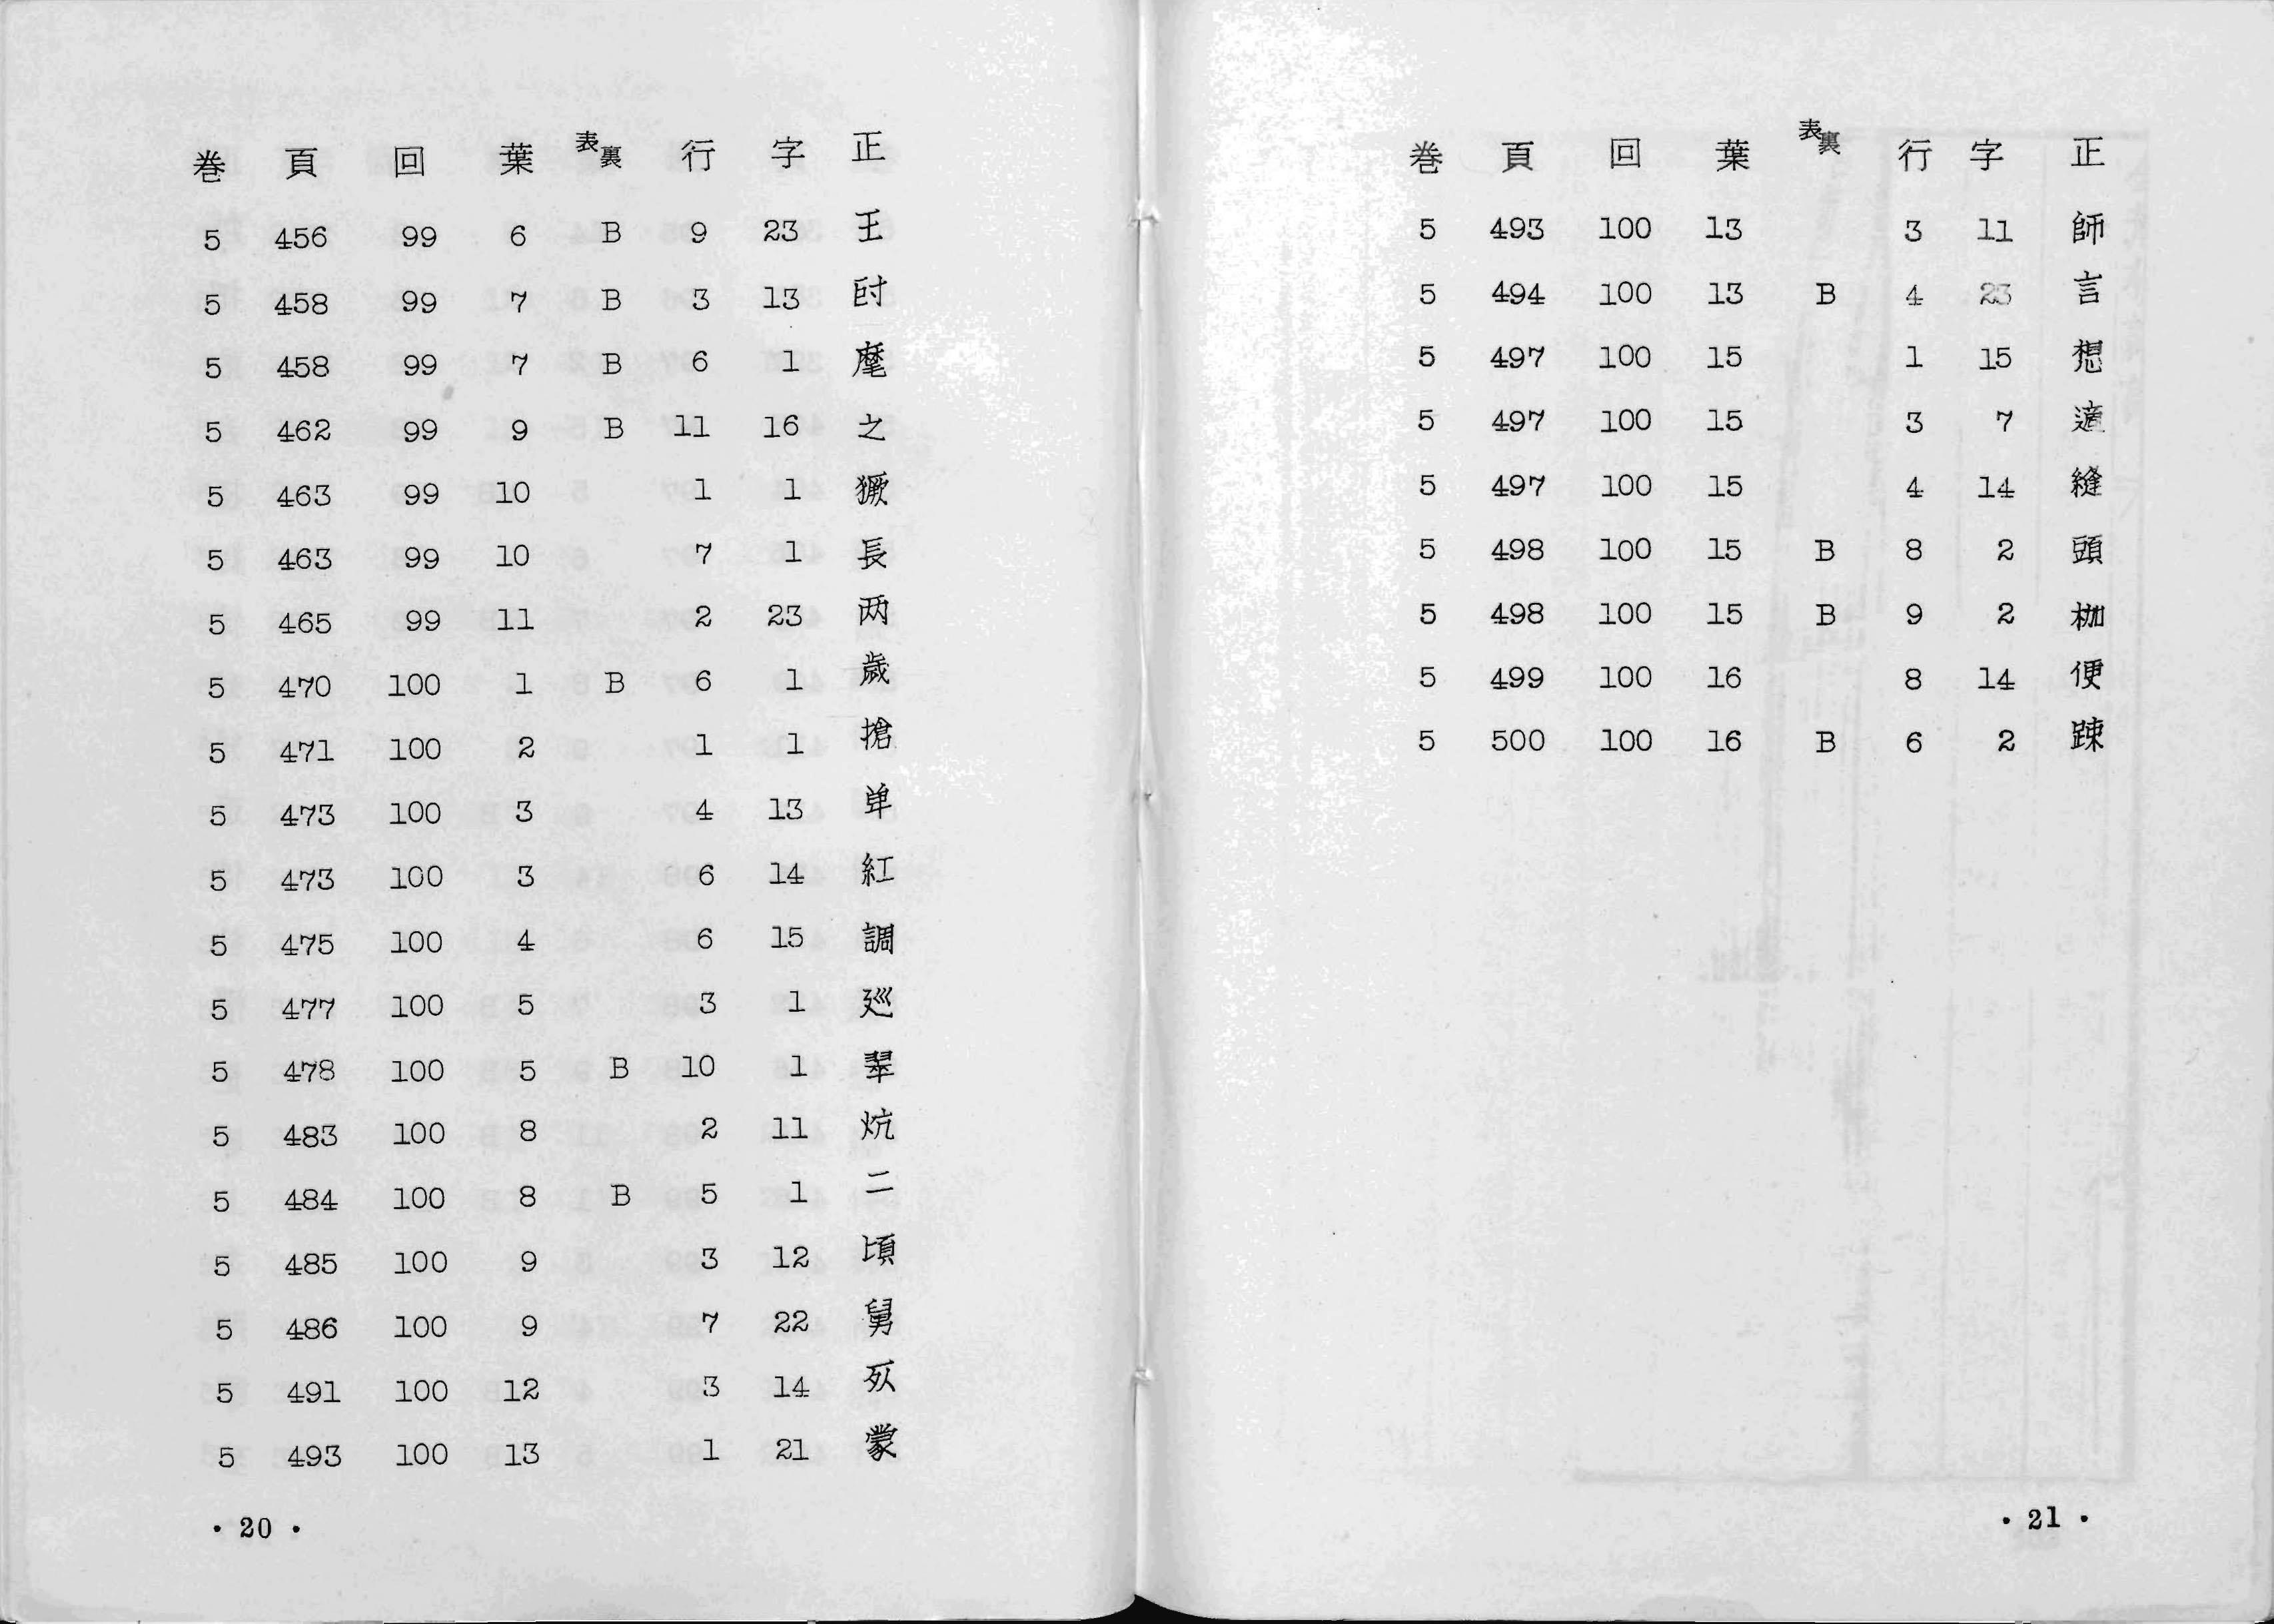 巻 頁 回 葉 表裏 行 字 正
5 456 99 6 B 9 23 王
5 458 99 7 B 3 13 酎
5 458 99 7 B 6 1 麾
5 462 99 9 B 11 16 之
5 463 99 10 1 1 獗
5 463 99 10 7 1 長
5 465 99 11 2 23 两
5 470 100 1 B 6 1 歳
5 471 100 2 1 1 搶
5 473 100 3 4 13 单
5 473 100 3 6 14 紅
5 475 100 4 6 15 調
5 477 100 5 3 1 廵
5 478 100 5 B 10 1 翠
5 483 100 8 2 11 炕
5 484 100 8 B 5 1 二
5 485 100 9 3 12 頃
5 486 100 9 7 22 舅
5 491 100 12 3 14
5 493 100 13 1 21 蒙
• 20 •
巻 頁 回 葉 表裏 行 字 正
5 493 100 13 3 11 師
5 494 100 13 B 4 23 言
5 497 100 15 1 15 想
5 497 100 15 3 7 適
5 497 100 15 4 14 縫
5 498 100 15 B 8 2 頭
5 498 100 15 B 9 2 枷
5 499 100 16 8 14 便
5 500 100 16 B 6 2 踈
• 21 •